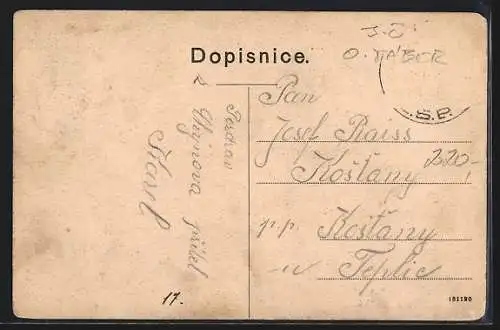 J.Č.
O. TÁBOR
Dopisnice.
S.P.
Pozdrav
z Chýnova přítel
Karel
17.
Pan
Josef Raiss
Košťany
220,-
p.p. Košťany
u Teplic
181120